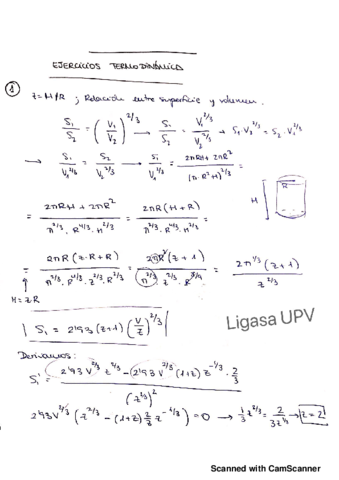 EJERCICIOS TERMODINÁMICA
8 Z = H/R ; Relación entre superficie y volumen.
S₁/S₂ = (V₁/V₂)^2/3 → S₁/S₂ = V₁^2/3 / V₂^2/3 → S₁·V₂^2/3 = S₂·V₁^2/3
→ S₁/V₁^2/3 = S₂/V₂^2/3 → S₁/V₁^2/3 = (2πRH + 2πR²)/(π·R²·H)^2/3 =
H R
= (2πRH + 2πR²)/(π^2/3·R^4/3·H^2/3) = 2πR(H+R)/(π^2/3·R^4/3·H^2/3) =
= 2πR(Z·R+R)/(π^2/3·R^4/3·Z^2/3·R^2/3) = 2πR²(Z+1)/(π^2/3·Z^2/3·R^2) = 2π^1/3(Z+1)/Z^2/3
H = ZR
S₁ = 2'93(Z+1)(V/Z)^2/3
Ligasa UPV
Derivamos:
S₁' = (2'93 V^2/3 Z^2/3 - (2'93 V^2/3 (1+Z) Z^-1/3 · 2/3)/(Z^2/3)²
2'93 V^2/3 (Z^2/3 - (1+Z) 2/3 Z^-1/3) = 0 → 1/3 Z^2/3 = 2/3Z^1/3 → Z = 2
Scanned with CamScanner